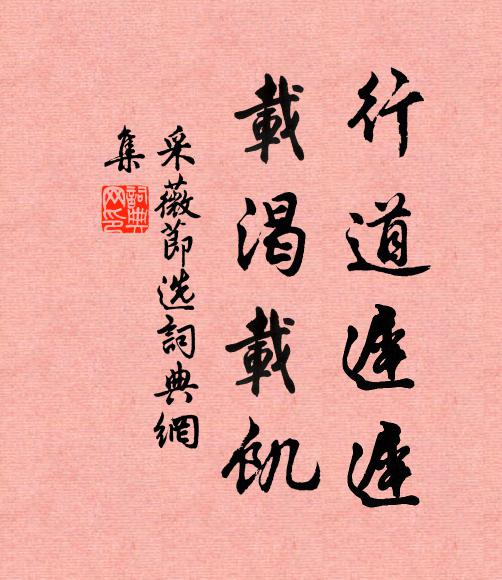 行道遲遲
載渴載飢
采薇節选詞典網
集
詞典
网印